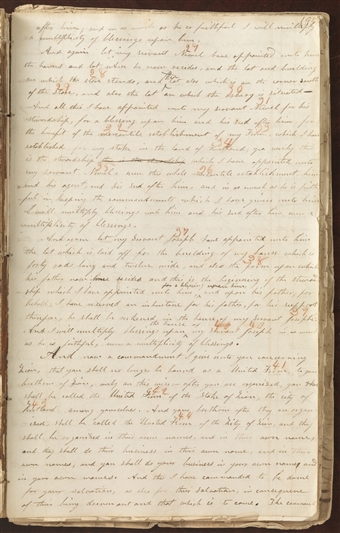 after him, and in as much as he is faithful I will multiply
a multiplicity of blessings upon him.
And again let my servant Newel have appointed unto him
the houses and lot where he now resides and the lot and building
on which the store stands, and the lot also which is on the corner south
of the store, and also the lot on which the Ashery is situated
And all this I have appointed unto my servant Newel for his
stewardship, for a blessing upon him and his seed after him for
the benefit of the mercantile establishment of my Firm which I have
established for my stake in the land of Kirtland, yea verily this
is the stewardship which I have appointed unto
my servant Newel even this whole mercantile establishment him
and his agent and his seed after him, and in as much as he is faith-
ful in keeping the commandments which I have given unto him
I will multiply blessings upon him and his seed after him even a
multiplicity of blessings.
And again let my servant Joseph have appointed unto him
the lot which is laid off for the building of my house which is
forty rods long and twelve wide, and also the farm upon which
his father now resides and this is the beginning of the steward-
ship which I have appointed unto him for a blessing upon him and upon his father, for
behold, I have reserved an inheritance for his father, for his support
therefore, he shall be reckoned in the house of my servant Joseph
And I will multiply blessings upon the house of my servant Joseph in as much
as he is faithful, even a multiplicity of blessings.
And now a commandment I give unto you concerning
Zion, that you shall no longer be bound as a United Firm to your
brethren of Zion, only on this wise after you are organized, you
shall be called the United Firm of the Stake of Zion, the city of
Kirtland among yourselves. And your brethren after they are organ-
ized, shall be called the United Firm of the City of Zion, and they
shall be organized in their own names, and in their own name,
and they shall do their business in their own name, and in their
own names, and you shall do your business in your own name, and
in your own names. And this I have commanded to be done
for your salvation, as also for their salvation, in consequence
of their being driven out and that which is to come. The coven-